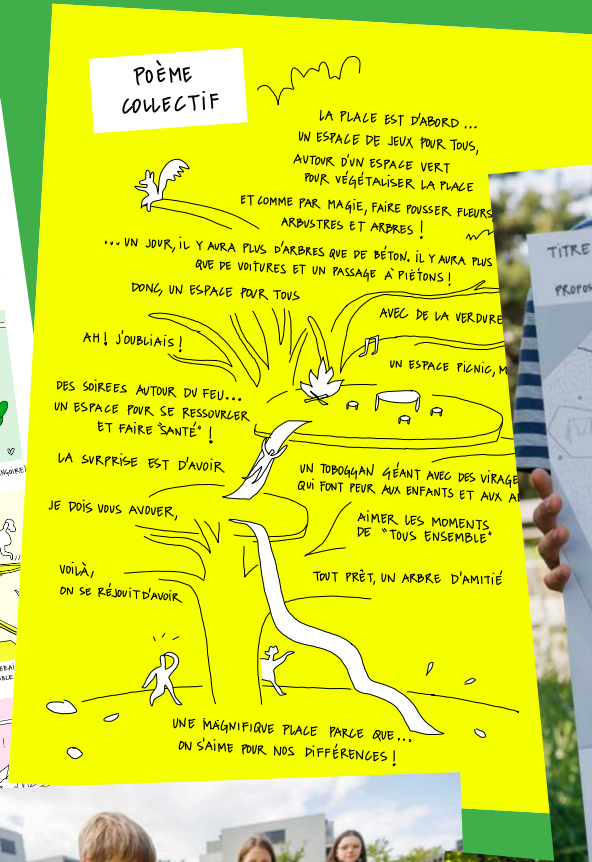 POÈME
COLLECTIF
LA PLACE EST D'ABORD ...
UN ESPACE DE JEUX POUR TOUS,
AUTOUR D'UN ESPACE VERT
POUR VÉGÉTALISER LA PLACE
ET COMME PAR MAGIE, FAIRE POUSSER FLEURS
ARBUSTRES ET ARBRES !
... UN JOUR, IL Y AURA PLUS D'ARBRES QUE DE BÉTON. IL Y AURA PLUS
QUE DE VOITURES ET UN PASSAGE À PIÉTONS !
DONC, UN ESPACE POUR TOUS
AVEC DE LA VERDURE
AH ! J'OUBLIAIS !
UN ESPACE PICNIC,
DES SOIREES AUTOUR DU FEU...
UN ESPACE POUR SE RESSOURCER
ET FAIRE "SANTÉ" !
LA SURPRISE EST D'AVOIR
UN TOBOGGAN GÉANT AVEC DES VIRAGE
QUI FONT PEUR AUX ENFANTS ET AUX
JE DOIS VOUS AVOUER,
AIMER LES MOMENTS
DE "TOUS ENSEMBLE"
VOILÀ,
ON SE RÉJOUIT D'AVOIR
TOUT PRÊT, UN ARBRE D'AMITIÉ
UNE MAGNIFIQUE PLACE PARCE QUE...
ON S'AIME POUR NOS DIFFÉRENCES !
TITRE
PROPOS